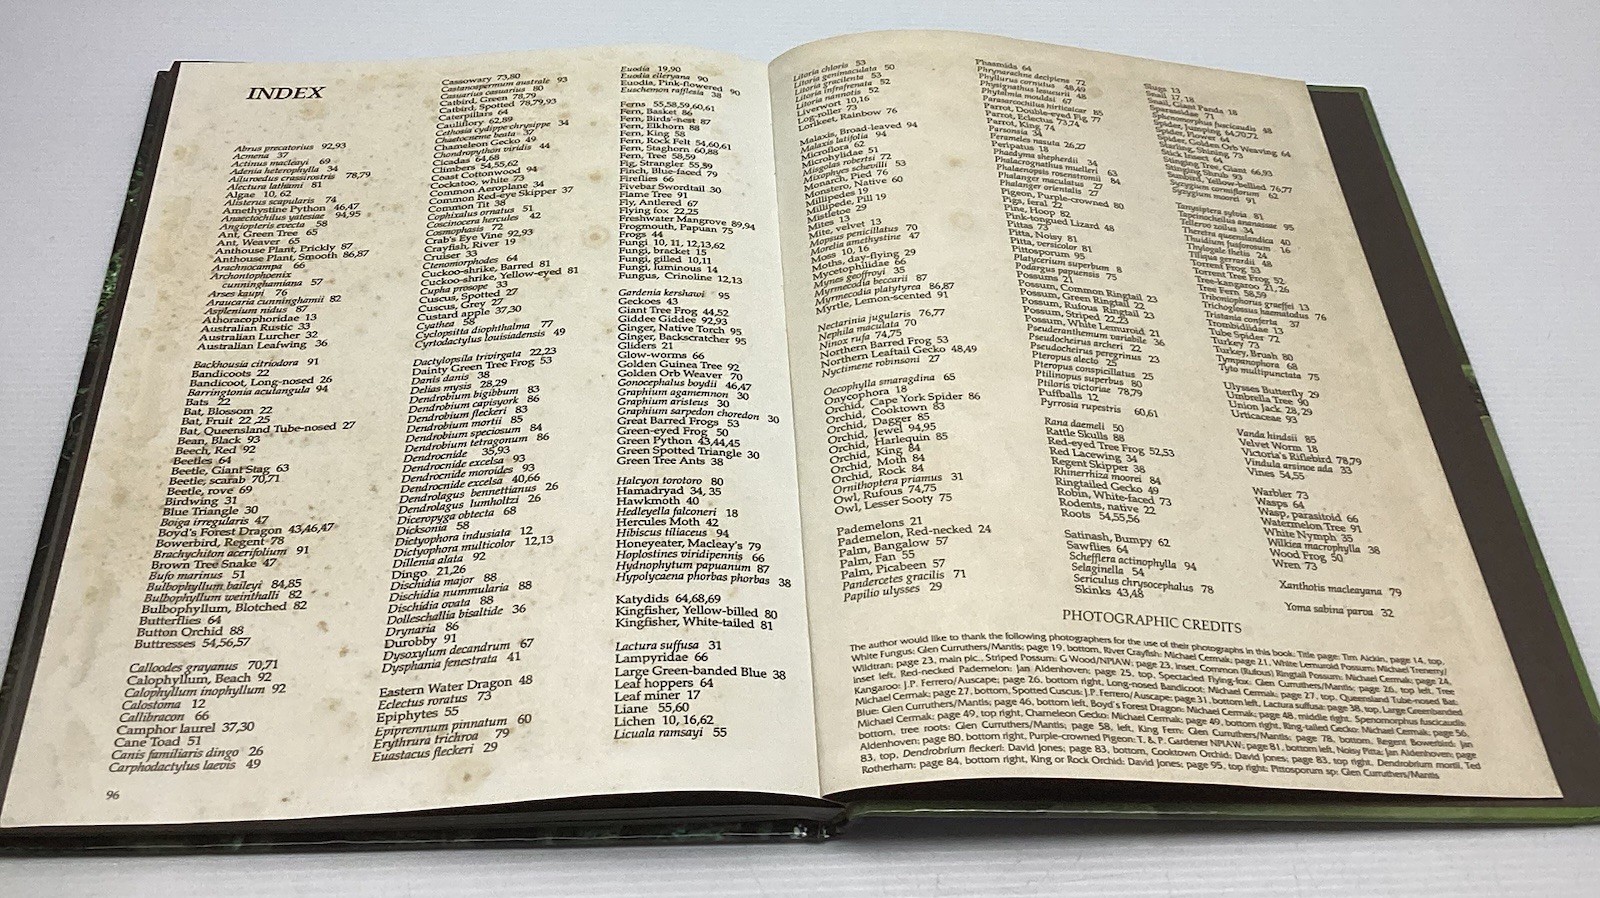 INDEX
Abrus precatorius 92,93
Acmena 37
Actinus macleayi 69
Adenia heterophylla 34
Ailuroedus crassirostris 78,79
Alectura lathami 81
Algae 10, 62
Alisterus scapularis 74
Amethystine Python 46,47
Anaectochilus yatesiae 94,95
Angiopteris evecta 58
Ant, Green Tree 65
Ant, Weaver 65
Anthouse Plant, Prickly 87
Anthouse Plant, Smooth 86,87
Arachnocampa 66
Archontophoenix
cunninghamiana 57
Arses kaupi 76
Araucaria cunninghamii 82
Asplenium nidus 87
Athoracophoridae 13
Australian Rustic 33
Australian Lurcher 32
Australian Leafwing 36
Backhousia citriodora 91
Bandicoots 22
Bandicoot, Long-nosed 26
Barringtonia aculangula 94
Bats 22
Bat, Blossom 22
Bat, Fruit 22,25
Bat, Queensland Tube-nosed 27
Bean, Black 93
Beech, Red 92
Beetles 64
Beetle, Giant Stag 63
Beetle, scarab 70,71
Beetle, rove 69
Birdwing 31
Blue Triangle 30
Boiga irregularis 47
Boyd's Forest Dragon 43,46,47
Bowerbird, Regent 78
Brachychiton acerifolium 91
Brown Tree Snake 47
Bufo marinus 51
Bulbophyllum baileyi 84,85
Bulbophyllum weinthalli 82
Bulbophyllum, Blotched 82
Butterflies 64
Button Orchid 88
Buttresses 54,56,57
Calloodes grayanus 70,71
Calophyllum, Beach 92
Calophyllum inophyllum 92
Calostoma 12
Callibracon 66
Camphor laurel 37,30
Cane Toad 51
Canis familiaris dingo 26
Carphodactylus laevis 49
96
Cassowary 73,80
Castanospermum australe 93
Casuarius casuarius 80
Catbird, Green 78,79
Catbird, Spotted 78,79,93
Caterpillars 64
Cauliflory 62,89
Cethosia cydippe chrysippe 34
Chaetocneme beata 37
Chameleon Gecko 49
Chondropython viridis 44
Cicadas 64,68
Climbers 54,55,62
Coast Cottonwood 94
Cockatoo, white 73
Common Aeroplane 34
Common Red-eye Skipper 37
Common Tit 38
Cophixalus ornatus 51
Coscinocera hercules 42
Cosmophasis 72
Crab's Eye Vine 92,93
Crayfish, River 19
Cruiser 33
Ctenomorphodes 64
Cuckoo-shrike, Barred 81
Cuckoo-shrike, Yellow-eyed 81
Cupha prosope 33
Cuscus, Spotted 27
Cuscus, Grey 27
Custard apple 37,30
Cyathea 58
Cyclopsitta diophthalma 77
Cyrtodactylus louisiadensis 49
Dactylopsila trivirgata 22,23
Dainty Green Tree Frog 53
Danis danis 38
Delias mysis 28,29
Dendrobium bigibbum 83
Dendrobium capisyork 86
Dendrobium fleckeri 83
Dendrobium mortii 85
Dendrobium speciosum 84
Dendrobium tetragonum 86
Dendrocnide 35,93
Dendrocnide excelsa 93
Dendrocnide moroides 93
Dendrocnide excelsa 40,66
Dendrolagus bennettianus 26
Dendrolagus lumholtzi 26
Diceropyga obtecta 68
Dicksonia 58
Dictyophora indusiata 12
Dictyophora multicolor 12,13
Dillenia alata 92
Dingo 21,26
Dischidia major 88
Dischidia nummularia 88
Dischidia ovata 88
Dolleschallia bisaltide 36
Drynaria 86
Durobby 91
Dysoxylum decandrum 67
Dysphania fenestrata 41
Eastern Water Dragon 48
Eclectus roratus 73
Epiphytes 55
Epipremnum pinnatum 60
Erythrura trichroa 79
Euastacus fleckeri 29
Euodia 19,90
Euodia elleryana 90
Euodia, Pink-flowered 90
Euschemon rafflesia 38
Ferns 55,58,59,60,61
Fern, Basket 86
Fern, Birds'-nest 87
Fern, Elkhorn 88
Fern, King 58
Fern, Rock Felt 54,60,61
Fern, Staghorn 60,88
Fern, Tree 58,59
Fig, Strangler 55,89
Finch, Blue-faced 79
Fireflies 66
Fivebar Swordtail 30
Flame Tree 91
Fly, Antlered 67
Flying fox 22,25
Freshwater Mangrove 89,94
Frogmouth, Papuan 75
Frogs 44
Fungi 10, 11, 12,13,62
Fungi, bracket 15
Fungi, gilled 10,11
Fungi, luminous 14
Fungus, Crinoline 12,13
Gardenia kershawi 95
Geckoes 43
Giant Tree Frog 44,52
Giddee Giddee 92,93
Ginger, Native Torch 95
Ginger, Backscratcher 95
Gliders 21
Glow-worms 66
Golden Guinea Tree 92
Golden Orb Weaver 70
Gonocephalus boydii 46,47
Graphium agamemnon 30
Graphium aristeus 30
Graphium sarpedon choredon 30
Great Barred Frogs 53
Green-eyed Frog 50
Green Python 43,44,45
Green Spotted Triangle 30
Green Tree Ants 38
Halcyon torotoro 80
Hamadryad 34, 35
Hawkmoth 40
Hedleyella falconeri 18
Hercules Moth 42
Hibiscus tiliaceus 94
Honeyeater, Macleay's 79
Hoplostines viridipennis 66
Hydnophytum papuanum 87
Hypolycaena phorbas phorbas 38
Katydids 64,68,69
Kingfisher, Yellow-billed 80
Kingfisher, White-tailed 81
Lactura suffusa 31
Lampyridae 66
Large Green-banded Blue 38
Leaf hoppers 64
Leaf miner 17
Liane 55,60
Lichen 10, 16,62
Licuala ramsayi 55
Litoria chloris 53
Litoria genimaculata 50
Litoria gracilenta 53
Litoria infrafrenata 52
Litoria nannotis 52
Liverwort 10,16
Log-roller 73
Lorikeet, Rainbow 76
Malaxis, Broad-leaved 94
Malaxis latifolia 94
Microflora 62
Microhylidae 51
Misgolas robertsi 72
Mixophyes schevilli 53
Monarch, Pied 76
Monstero, Native 60
Millipedes 19
Millipede, Pill 19
Mistletoe 29
Mites 13
Mite, velvet 13
Mopsus penicillatus 70
Morelia amethystina 47
Moss 10,16
Moths, day-flying 29
Mycetophilidae 66
Mynes geoffroyi 35
Myrmecodia beccarii 87
Myrmecodia platytyrea 86,87
Myrtle, Lemon-scented 91
Nectarinia jugularis 76,77
Nephila maculata 70
Ninox rufa 74,75
Northern Barred Frog 53
Northern Leaftail Gecko 48,49
Nyctimene robinsoni 27
Oecophylla smaragdina 65
Onycophora 18
Orchid, Cape York Spider 86
Orchid, Cooktown 83
Orchid, Dagger 85
Orchid, Jewel 94,95
Orchid, Harlequin 85
Orchid, King 84
Orchid, Moth 84
Orchid, Rock 84
Ornithoptera priamus 31
Owl, Rufous 74,75
Owl, Lesser Sooty 75
Pademelons 21
Pademelon, Red-necked 24
Palm, Bangalow 57
Palm, Fan 55
Palm, Picabeen 57
Pandercetes gracilis 71
Papilio ulysses 29
Phasmids 64
Phrynarachne decipiens 72
Phyllurus cornutus 48,49
Physignathus lesueurii 48
Phytalmia mouldsi 67
Parasarcochilus hirticalcar 85
Parrot, Double-eyed Fig 77
Parrot, Eclectus 73,74
Parrot, King 74
Parsonsia 34
Perameles nasuta 26,27
Peripatus 18
Phaedyma shepherdii 34
Phalacrognathus muelleri 63
Phalaenopsis rosenstromii 84
Phalanger maculatus 27
Phalanger orientalis 27
Pigeon, Purple-crowned 80
Pigs, feral 22
Pine, Hoop 82
Pink-tongued Lizard 48
Pittas 73
Pitta, Noisy 81
Pitta, versicolor 81
Pittosporum 95
Platycerium superbum 8
Podargus papuensis 75
Possums 21
Possum, Common Ringtail 23
Possum, Green Ringtail 22
Possum, Rufous Ringtail 23
Possum, Striped 22,23
Possum, White Lemuroid 21
Pseuderanthemum variabile 36
Pseudocheirus archeri 22
Pseudocheirus peregrinus 23
Pteropus alecto 25
Pteropus conspicillatus 25
Ptilinopus superbus 80
Ptiloris victoriae 78,79
Puffballs 12
Pyrrosia rupestris 60,61
Rana daemeli 50
Rattle Skulls 88
Red-eyed Tree Frog 52,53
Red Lacewing 34
Regent Skipper 38
Rhinerrhiza moorei 84
Ringtailed Gecko 49
Robin, White-faced 73
Rodents, native 22
Roots 54,55,56
Satinash, Bumpy 62
Sawflies 64
Schefflera actinophylla 94
Selaginella 54
Sericulus chrysocephalus 78
Skinks 43,48
Slugs 13
Snail 17, 18
Snail, Giant Panda 18
Sparassidae 71
Sphenomorphus fuscicaudis 48
Spider, Jumping 64,70,72
Spider, Flower 64
Spider, Golden Orb Weaving 64
Starling, Shining 73
Stick Insect 64
Stinging Tree, Giant 66,93
Stinging Shrub 93
Sunbird, Yellow-bellied 76,77
Syzygium cormiflorum 62
Syzygium moorei 91
Tanysiptera sylvia 81
Tapeinocheilus ananassae 95
Telleros zoilus 34
Theretra queenslandica 40
Thuidium fusforosum 16
Thylogale thetis 24
Tiliqua gerrardii 48
Torrent Frog 53
Torrent Tree Frog 52
Tree-kangaroo 21,26
Tree Fern 58,59
Triboniophorus graeffei 13
Trichoglossus haematodus 76
Tristania conferta 37
Trombidiidae 13
Tube Spider 72
Turkey 73
Turkey, Brush 80
Tympanophora 68
Tyto multipunctata 75
Ulysses Butterfly 29
Umbrella Tree 90
Union Jack 28,29
Urticaceae 93
Vanda hindsii 85
Velvet Worm 18
Victoria's Riflebird 78,79
Vindula arsinoe ada 33
Vines 54,55
Warbler 73
Wasps 64
Wasp, parasitoid 66
Watermelon Tree 91
White Nymph 35
Wilkiea macrophylla 38
Wood Frog 50
Wren 73
Xanthotis macleayana 79
Yoma sabina parva 32
PHOTOGRAPHIC CREDITS
The author would like to thank the following photographers for the use of their photographs in this book. Title page: Tim Aickin, page 14, top,
White Fungus: Glen Curruthers/Mantis; page 19, bottom, River Crayfish: Michael Cermak; page 21, White Lemuroid Possum: Michael Trenerry/
Wildtran; page 23, main pic., Striped Possum: G Wood/NPIAW; page 23, inset, Common (Rufous) Ringtail Possum: Michael Cermak; page 24,
inset left, Red-necked Pademelon: Jan Aldenhoven; page 25, top, Spectacled Flying-fox: Glen Curruthers/Mantis; page 26, top left, Tree
Kangaroo: J.P. Ferrero/Auscape; page 26, bottom right, Long-nosed Bandicoot: Michael Cermak; page 27, top, Queensland Tube-nosed Bat:
Michael Cermak; page 27, bottom, Spotted Cuscus: J.P. Ferrero/Auscape; page 31, bottom left, Lactura suffusa; page 38, top, Large Greenbanded
Blue: Glen Curruthers/Mantis; page 46, bottom left, Boyd's Forest Dragon: Michael Cermak; page 48, middle right, Spenomorphus fuscicaudis:
Michael Cermak; page 49, top right, Chameleon Gecko: Michael Cermak; page 49, bottom right, Ring-tailed Gecko: Michael Cermak; page 56,
bottom, tree roots: Glen Curruthers/Mantis; page 58, left, King Fern: Glen Curruthers/Mantis; page 78, bottom, Regent Bowerbird: Jan
Aldenhoven; page 80, bottom right, Purple-crowned Pigeon: T. & P. Gardener NPIAW; page 81, bottom left, Noisy Pitta: Jan Aldenhoven; page
83, top, Dendrobrium fleckeri: David Jones; page 83, bottom, Cooktown Orchid: David Jones; page 83, top right, Dendrobium mortii, Ted
Rotherham; page 84, bottom right, King or Rock Orchid: David Jones; page 95, top right: Pittosporum sp: Glen Curruthers/Mantis